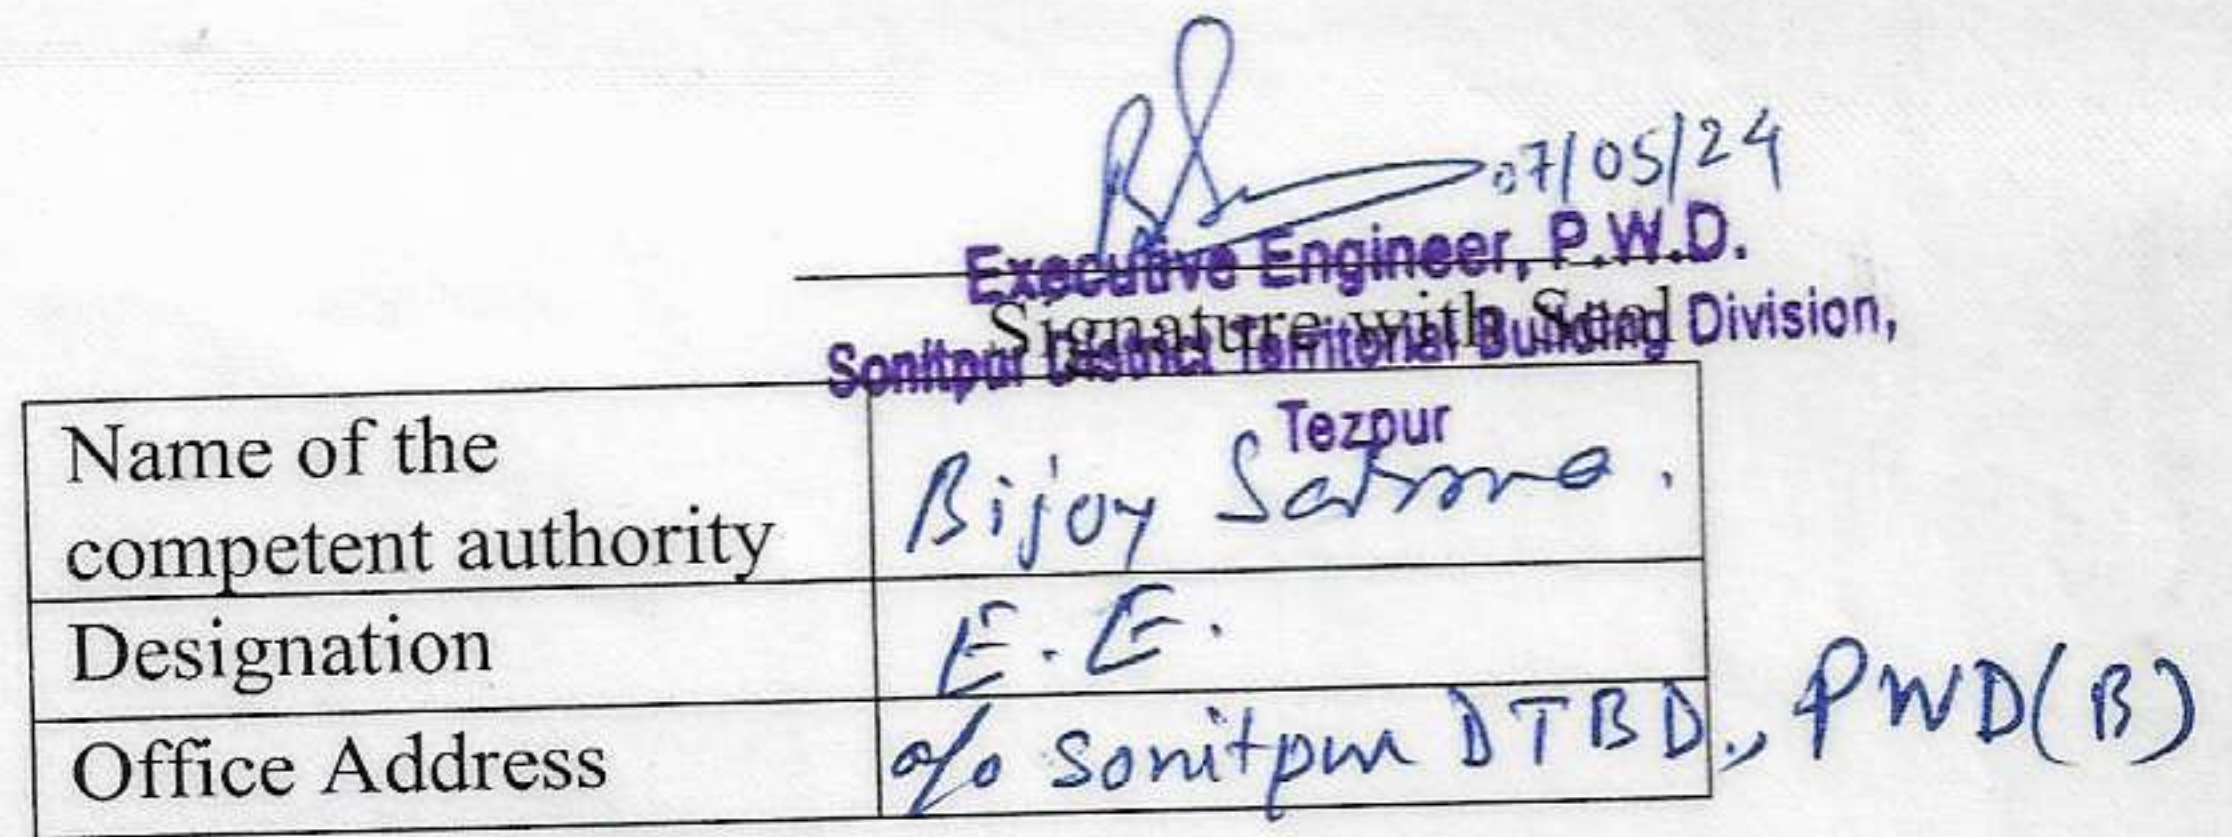 07/05/24
Executive Engineer, P.W.D.
Signature with Seal
Sonitpur District Territorial Building Division,
Tezpur
Name of the
competent authority
Bijoy Sarma.
Designation
E.E.
Office Address
o/o Sonitpur DTBD., PWD(B)